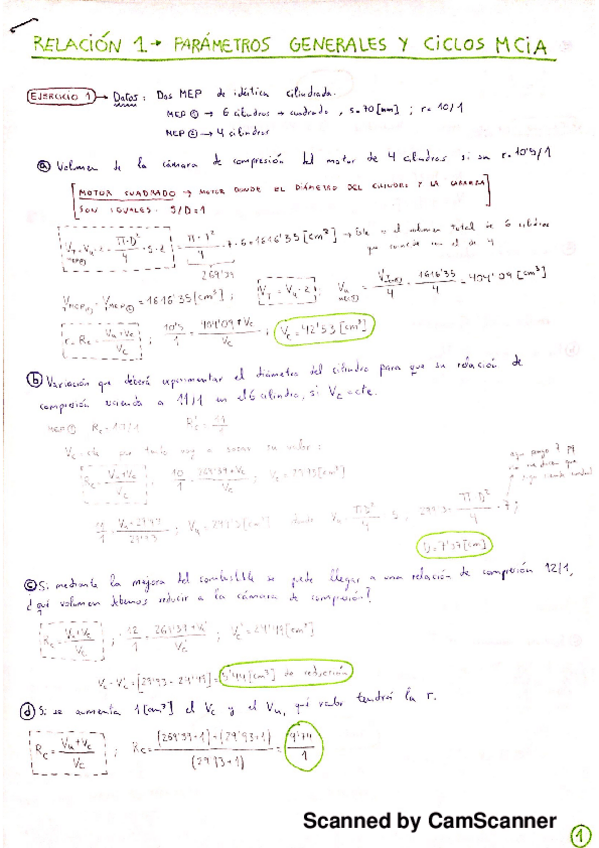 RELACIÓN 1.→ PARÁMETROS GENERALES Y CICLOS MCiA
EJERCICIO 1 → Datos: Dos MEP de idéntica cilindrada.
MEP ① → 6 cilindros → cuadrado, s=70[mm] ; r= 10/1
MEP ② → 4 cilindros
ⓐ Volumen de la cámara de compresión del motor de 4 cilindros si su r=10'5/1
MOTOR CUADRADO → MOTOR DONDE EL DIÁMETRO DEL CILINDRO Y LA CARRERA
SON IGUALES. S/D=1
V_T = V_u · z = π·D²/4 · s · z = π·D²/4 · 7 · 6 = 1616'35 [cm³] → Este es el volumen total de 6 cilindros
que coincide con el de 4
269'39
= 1616'35[cm³] ; V_T = V_u · z V_u = 1616'35/4 = 404'09 [cm³]
r = R_c = V_u+V_c/V_c ; 10'5/1 = 404'09+V_c/V_c ; V_c = 42'53 [cm³]
ⓑ Variación que deberá experimentar el diámetro del cilindro para que su relación de
compresión ascienda a 11/1 en el 6 cilindros, si V_c cte.
V_c = cte por tanto voy a sacar su valor :
R_c = V_u+V_c/V_c ; 10/1 = 269'39+V_c/V_c ; V_c = 29'93[cm³]
11/1 = V_u+29'93/29'93 ; V_u = 299'3[cm³] donde V_u = πD²/4 · s ; 299'3 = π·D²/4 · 7 ;
D=7'37[cm]
ⓒ Si mediante la mejora del combustible se puede llegar a una relación de compresión 12/1,
¿qué volumen debemos reducir a la cámara de compresión?
R_c = V_u+V_c/V_c ; 12/1 = 269'39+V_c'/V_c' ; V_c' = 24'49[cm³]
V_c - V_c' = [29'93 - 24'49] = 5'44[cm³] de reducción
ⓓ Si se aumenta 1[cm³] el V_c y el V_u, qué valor tendrá la r.
R_c = V_u+V_c/V_c ; R_c = (269'39+1)+(29'93+1)/(29'93+1) = 9'74/1
Scanned by CamScanner
①